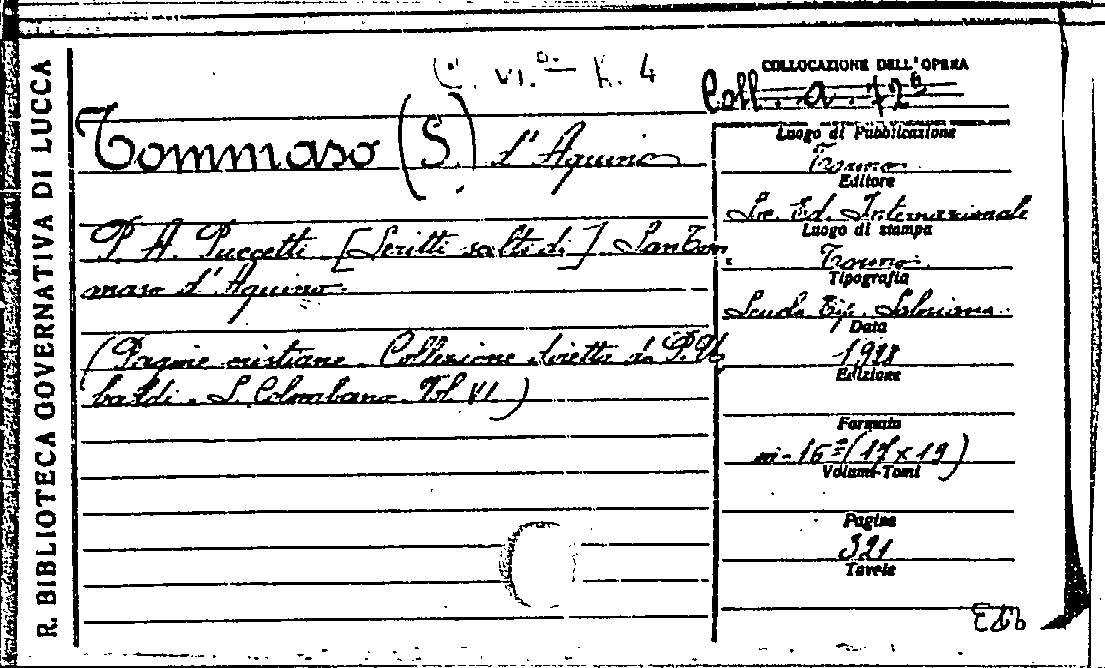 R. BIBLIOTECA GOVERNATIVA DI LUCCA
C. VI.º K. 4
COLLOCAZIONE DELL'OPERA
Coll. a. 72
Tommaso (S.) d'Aquino
P. A. Puccetti [Scritti scelti di] San Tom
maso d'Aquino.
(Pagine cristiane. Collezione diretta da P. U
baldi. S. Colombano. Vol VI)
Luogo di Pubblicazione
Torino
Editore
Soc. Ed. Internazionale
Luogo di stampa
Torino
Tipografia
Scuola Tip. Salesiana
Data
Edizione
Formato
in-16º (17 x 19)
Volumi-Tomi
Pagine
321
Tavole